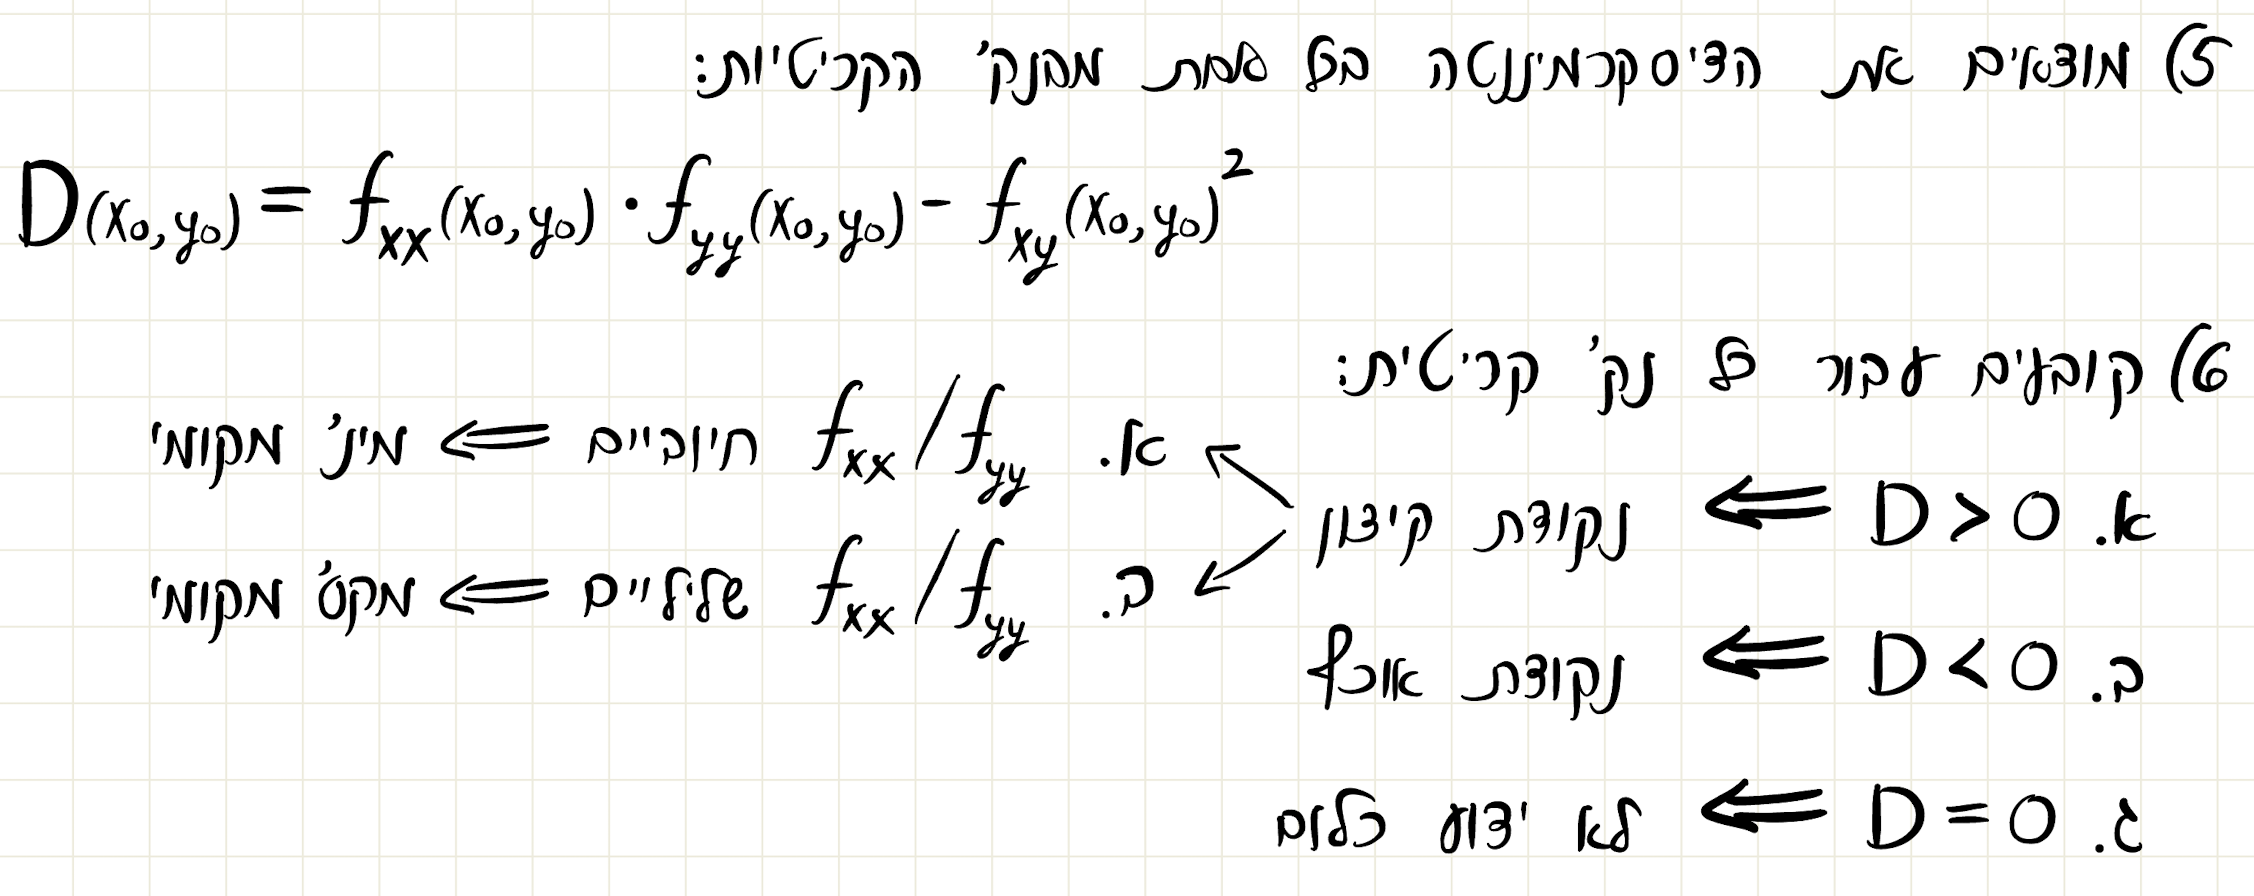 5) מוצאים את הדיסקרמיננטה בכל אחת מהנק' הקריטיות:
D(x₀,y₀) = f_xx(x₀,y₀) · f_yy(x₀,y₀) - f_xy(x₀,y₀)²
6) קובעים עבור כל נק' קריטית:
א. D > 0 ⇐ נקודת קיצון
א. f_xx/f_yy חיוביים ⇐ מינ' מקומי
ב. f_xx/f_yy שליליים ⇐ מקס' מקומי
ב. D < 0 ⇐ נקודת אוכף
ג. D = 0 ⇐ לא ידוע כלום